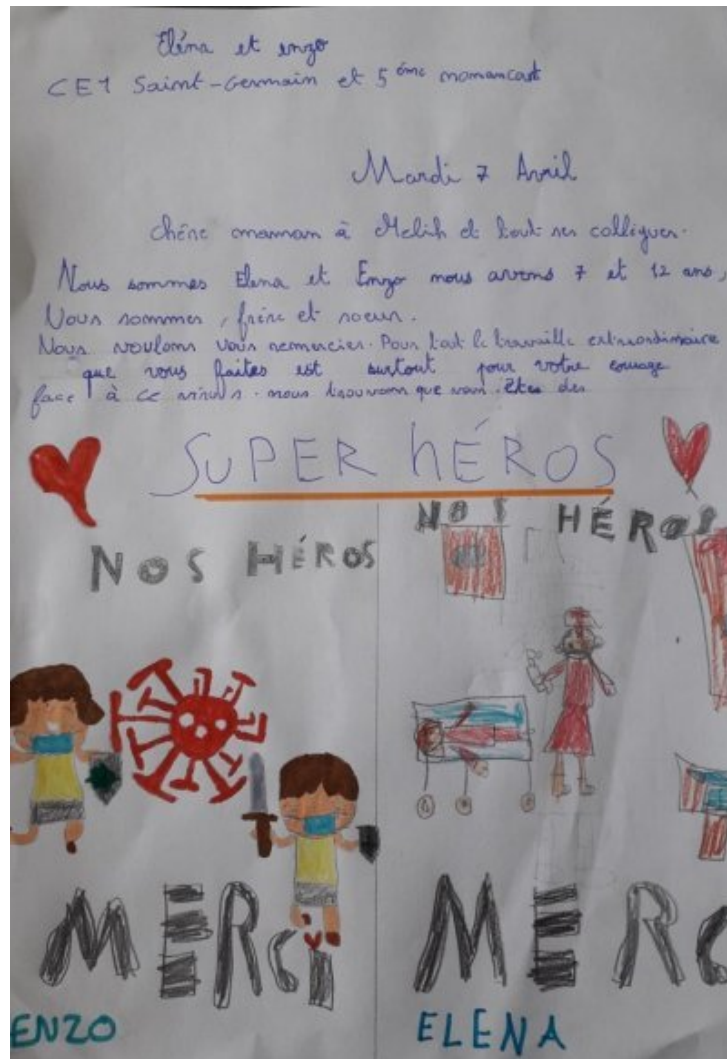 Eléna et enzo
CE1 Saint-Germain et 5 éme momancart
Mardi 7 Avril
chère maman à Melih et tout ses collègues.
Nous sommes Elena et Enzo nous avons 7 et 12 ans,
Nous sommes, frère et soeur.
Nous voulons vous remercier. Pour tout le travaille extraordimaire
que vous faites est surtout pour votre courage
face à ce virus. nous trouvons que vous êtes des
SUPER HÉROS
NOS HÉROS
NOS HÉROS
MERCi
MERC
ENZO
ELENA